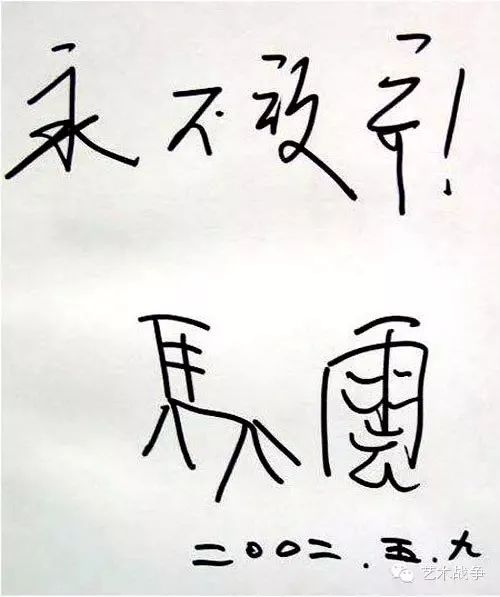 永不放弃!
馬雲
二〇〇二.五.九
艺术战争